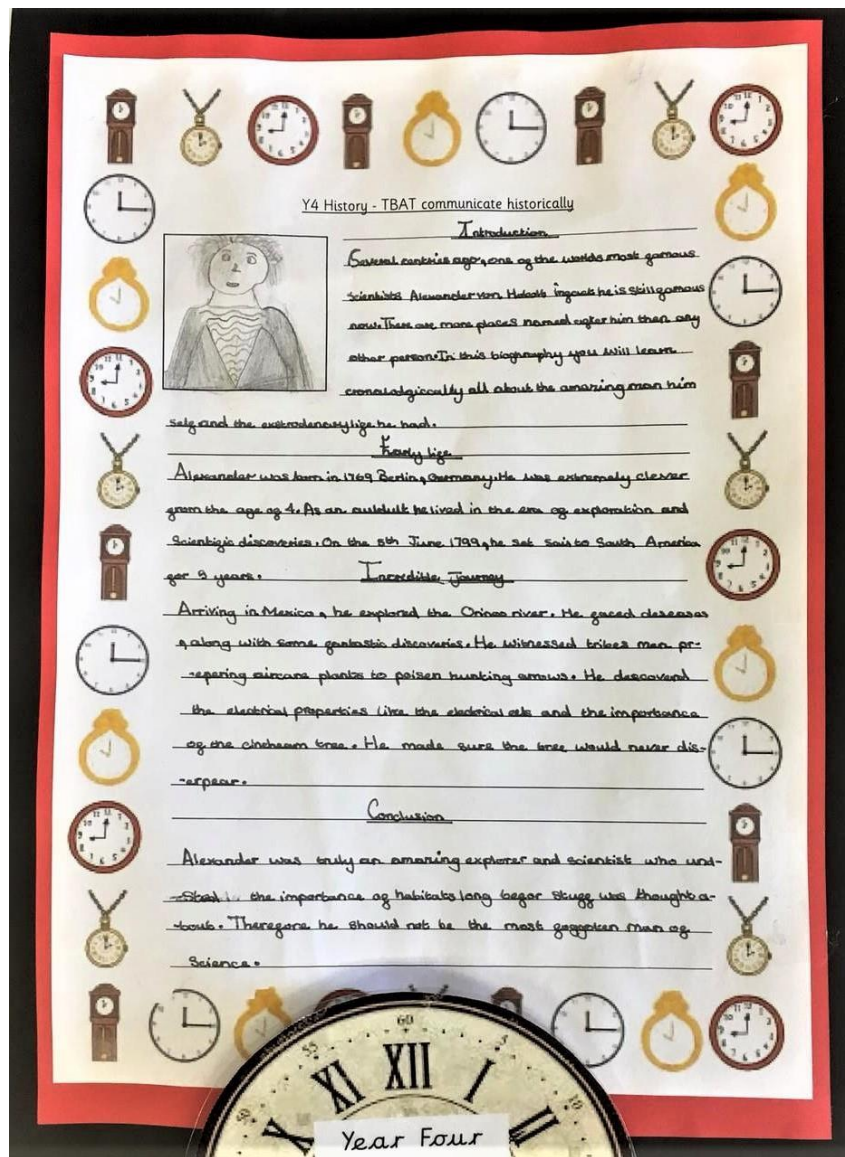 Y4 History - TBAT communicate historically
Introduction
Several centries ago, one of the worlds most famous
scientists Alexander von Infact he is still famous
now. There are more places named after him then any
other person. In this biography you will learn
all about the amazing man him
self and the life he had.
Early life
Alexander was born in 1769 Berlin, Germany. He was extremely clever
from the age of 4. As an he lived in the era of exploration and
scientific discoveries. On the 5th June 1799, he set sail to South America
for 5 years. Incredible Journey
Arriving in Mexico, he explored the river. He faced deseases
, along with some fantastic discoveries. He witnessed tribes men pr-
-epering plants to poisen hunting arrows. He descoverd
the electrical properties like the electrical eels and the importance
of the tree. He made sure the tree would never dis-
-erpear.
Conclusion
Alexander was truly an amazing explorer and scientist who und-
the importance of habitats long befor stuff was thought a-
-bout. Therefore he should not be the most man of
Science.
60
55
5
50
10
X XI XII I II
Year Four